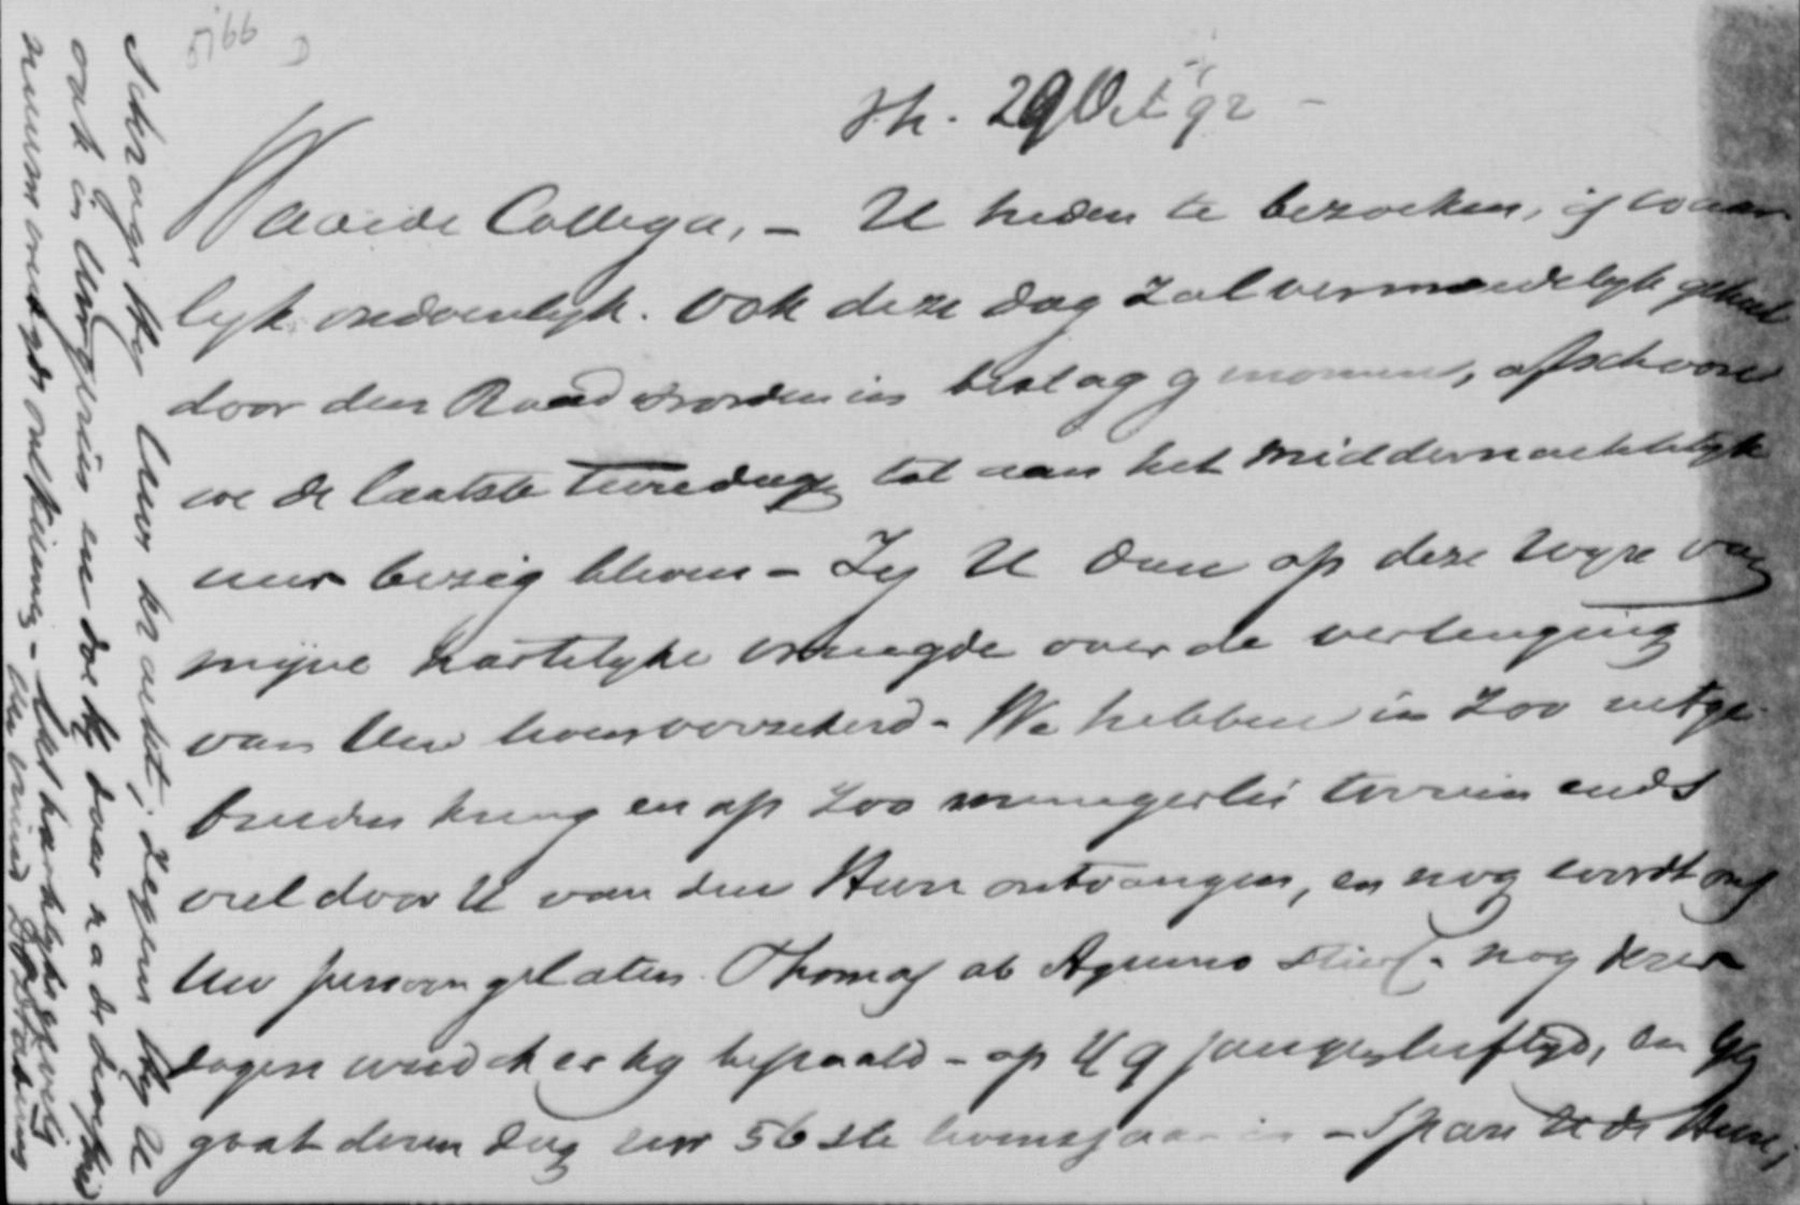 5766
D
Th. 29 Oct '92 -
Waarde Collega, - U heden te bezoeken, is waar-
lyk ondoenlyk. Ook deze dag zal vermoedelyk geheel
door den Raad worden in beslag genomen, ofschoon
we de laatste twee dagen tot aan het middernachtelyk
uur bezig bleven - Zy U dan op deze wyze van
mijne hartelyke vreugde over de verlenging
van Uw levensvoorrecht - We hebben in zoo uitge-
breiden kring en op zoo menigerlei terrein
veel door U van den Heer ontvangen, en nog wordt ons
Uw persoon gelaten. Thomas ab Aquino stierf - nog dezer
dagen werd ik er by bepaald - op 49 jarigen leeftyd, en Gy
gaat dezen dag uw 56ste levensjaar in - Spare U de Heere,
Schrage Hy Uwe kracht; zegene Hy U
ook in Uw gezin en doe Hy daar na de
nimmer ontkiemen - Met hartelyke
Uw vriend